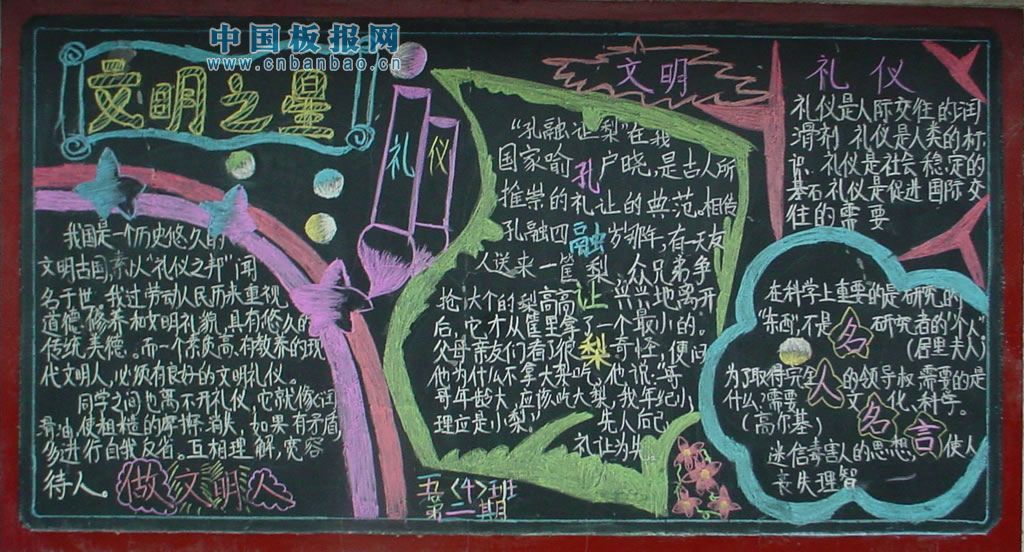 中国板报网
www.cnbanbao.cn
文明之星
礼仪
我国是一个历史悠久的
文明古国,素以"礼仪之邦"闻
名于世,我过劳动人民历来重视
道德修养和文明礼貌,具有悠久的
传统美德。而一个素质高,有教养的现
代文明人,必须有良好的文明礼仪。
同学之间也离不开礼仪,它就像润
滑油,使粗糙的摩擦消失,如果有矛盾
多进行自我反省。互相理解,宽容
待人。
做文明人
文明
孔融让梨
"孔融让梨"在我
国家喻户晓,是古人所
推崇的礼让的典范,相传
孔融四岁那年,有一天友
人送来一筐梨,众兄弟争
抢大个的梨高高兴兴地离开
后,它才从筐里拿了一个最小的。
父母亲友们看了很奇怪,便问
他为什么不拿大梨吃,他说,哥
哥年龄大,应该吃大梨,我年纪小
理应是小梨。先人后己,
礼让为先
五<4>班
第二期
礼仪
礼仪是人际交往的润
滑剂 礼仪是人类的标
识、礼仪是社会稳定的
基石,礼仪是促进国际交
往的需要
名人名言
在科学上重要的是研究的
"东西",不是研究者的"个人"
(居里夫人)
为了取得完全的领导权,需要的是
什么?需要文化、科学。
(高尔基)
迷信毒害人的思想,使人
丧失理智